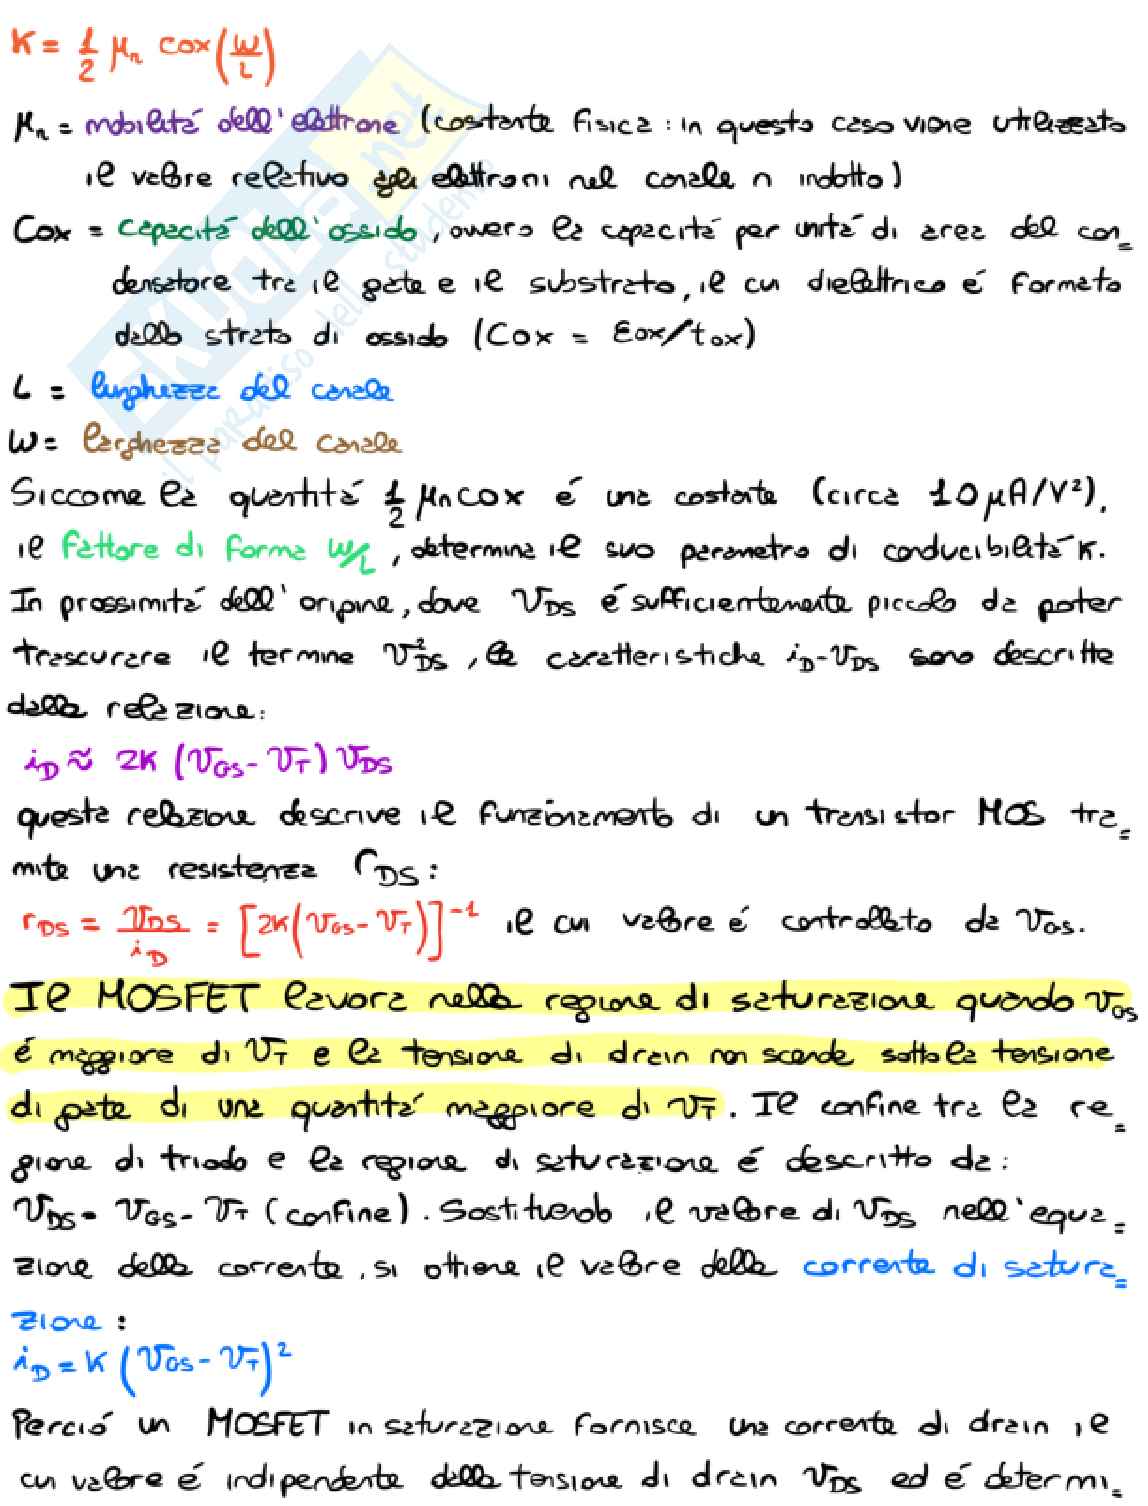 K = 1/2 μn Cox (W/L)
μn = mobilità dell'elettrone (costante fisica: in questo caso viene utilizzato
il valore relativo agli elettroni nel canale n indotto)
Cox = capacità dell'ossido, ovvero la capacità per unità di area del con=
densatore tra il gate e il substrato, il cui dielettrico é formato
dallo strato di ossido (Cox = εox/tox)
L = lunghezza del canale
W = larghezza del canale
Siccome la quantità 1/2 μn Cox é una costante (circa 10 μA/V²),
il fattore di forma W/L, determina il suo parametro di conducibilità K.
In prossimità dell'origine, dove VDS é sufficientemente piccolo da poter
trascurare il termine V²DS, le caratteristiche iD-VDS sono descritte
dalla relazione:
iD ≈ 2K (VGS - VT) VDS
questa relazione descrive il funzionamento di un transistor MOS tra=
mite una resistenza rDS:
rDS = VDS/iD = [2K(VGS - VT)]⁻¹ il cui valore é controllato da VGS.
Il MOSFET lavora nella regione di saturazione quando VGS
é maggiore di VT e la tensione di drain non scende sotto la tensione
di gate di una quantità maggiore di VT. Il confine tra la re=
gione di triodo e la regione di saturazione é descritto da:
VDS = VGS - VT (confine). Sostituendo il valore di VDS nell'equa=
zione della corrente, si ottiene il valore della corrente di satura=
zione:
iD = K (VGS - VT)²
Perció un MOSFET in saturazione fornisce una corrente di drain il
cui valore é indipendente dalla tensione di drain VDS ed é determi=
SKUOLA.net
il paradiso dello studente